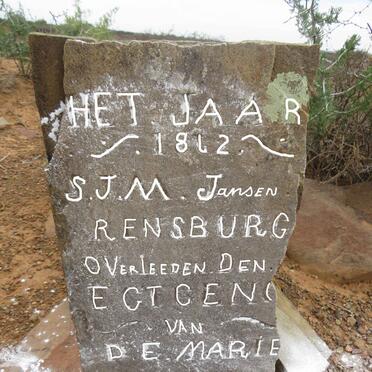 HET JAAR
1862
S.J.M. Jansen
RENSBURG
OVerLEEDEN DEN
EGTGENO
VAN
DE MARIE